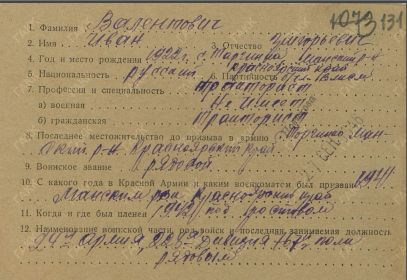 1073 131
1. Фамилия Валентович
2. Имя Иван Отчество Григорьевич
4. Год и место рождения 1922 г. с. Манский р-н Красноярский край
5. Национальность русский 6. Партийность
7. Профессия и специальность тракторист
а) военная Не имеет
б) гражданская тракторист
8. Последнее местожительство до призыва в армию Ман-
ский р-н. Красноярский край
9. Воинское звание рядовой
10. С какого года в Красной Армии и каким военкоматом был призван 1941
Манским рвк Красноярский край
11. Когда и где был пленен под Ростовом
12. Наименование воинской части, род войск и последняя занимаемая должность
армия, дивизия полк
рядовым